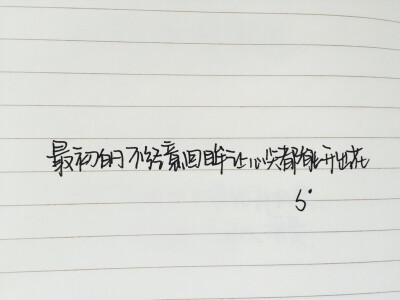 最初的不经意回眸让心尖都能开出花
5°